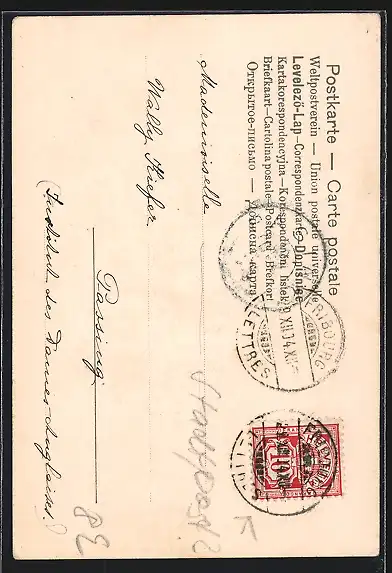 Postkarte — Carte postale
Weltpostverein — Union postale universelle
Levelező-Lap—Correspondenzkarte—Dopisnice
Kartakorespondencyjna—Korespondenční lístek
Briefkaart—Cartolina postale—Postcard—Brefkort
Открытое-письмо — Дописна карта
FRIBOURG
XII.04.XII
LETTRES
HELVETIA
10
Mademoiselle
Wally Kiefer
Passing
(Institut des Dames Anglaises.)
Stadtpost?
82